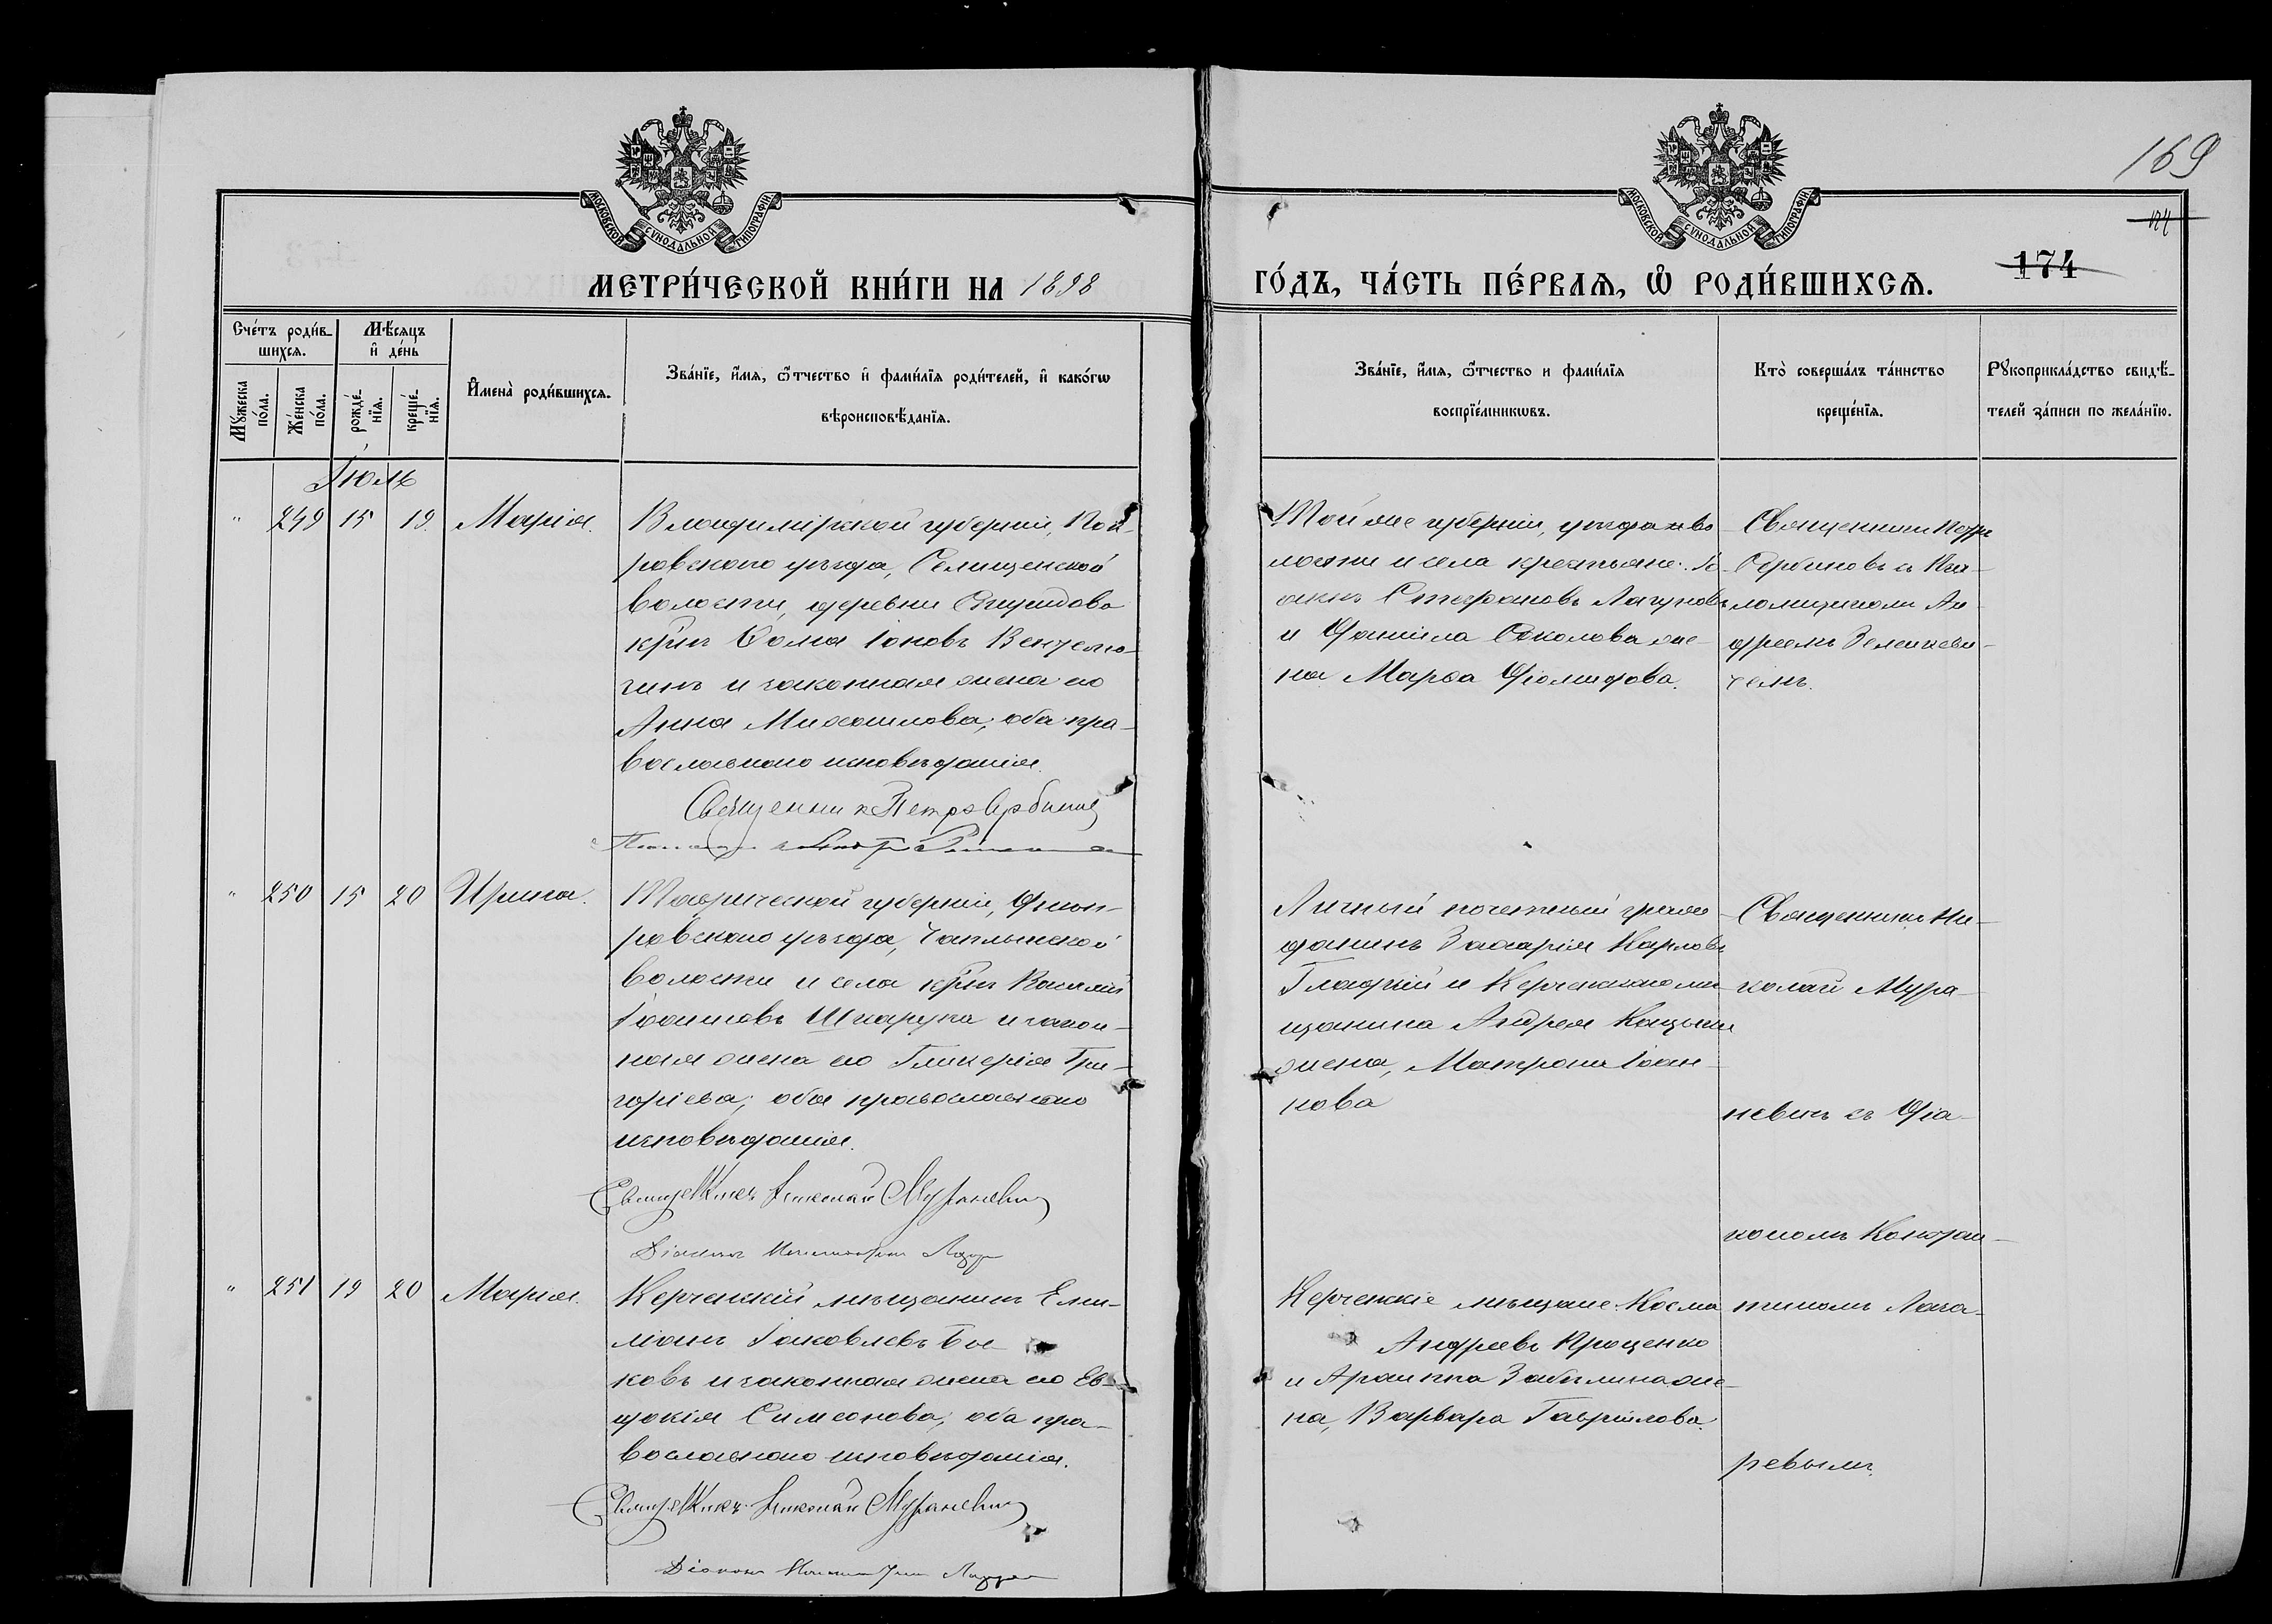 169
МОСКОВСКОЙ СѴНОДАЛЬНОЙ ТИПОГРАФІИ.
МОСКОВСКОЙ СѴНОДАЛЬНОЙ ТИПОГРАФІИ.
174
174
МЕТРИ́ЧЕСКОЙ КНИ́ГИ НА 1898 ГО́ДЪ, ЧА́СТЬ ПЕ́РВАѦ, Ѡ҆ РОДИ́ВШИХСѦ.
Сче́тъ роди́в-
шихсѧ.
Мꙋ́жеска
по́ла.
Же́нска
по́ла.
Мѣ́сѧцъ
и҆ де́нь
рожде́-
нїѧ.
креще́-
нїѧ.
И҆мена̀ роди́вшихсѧ.
Зва́нїе, и҆́мѧ, ѻ҆́тчество и҆ фами́лїѧ роди́телей, и҆ како́гѡ
вѣроисповѣ́данїѧ.
Зва́нїе, и҆́мѧ, ѻ҆́тчество и фами́лїѧ
воспрїе́мникѡвъ.
Кто̀ соверша́лъ та́инство
креще́нїѧ.
Рꙋкоприкла́дство свидѣ́-
телей за́писи по жела́нїю.
Іюль
" 249 15 19. Марія.
Владимірской губерніи, Пок-
ровскаго уѣзда, Селищенской
волости, деревни
кр-нъ Ѳома Іоновъ
и законная жена его
Анна Михаилова; оба пра-
вославнаго исповѣданія.
Священникъ Петръ Сербиновъ
Той же губерніи, уѣзда, во
лости и села крестьяне:
Стефановъ
и Даніила Соколова же-
на Марѳа Діомидова.
Священникъ Петръ
Сербиновъ съ Пса-
ломщикомъ Ан-
дреемъ Зеленкеви-
чемъ.
" 250 15 20 Ирина.
Таврической губерніи, Днѣп-
ровскаго уѣзда, Чаплынской
волости и села кр-нъ Василій
Іоанновъ Шкарупа и закон-
ная жена его Гликерія Гри-
горіева; оба православнаго
исповѣданія.
Священникъ Николай Мураневичъ
Діаконъ Константинъ
Личный почетный граж-
данинъ Захарія Карповъ
Гладкій и Керченскаго мѣ-
щанина Андрея
жена, Матрона Іоан-
нова
Священникъ Ни-
колай Мура-
невичъ съ Діа-
кономъ Констан-
тиномъ Лаза-
ревымъ.
" 251 19 20 Марія.
Керченскій мѣщанинъ Еми-
ліанъ Іаковлевъ Бы-
ковъ и законная жена его Ев-
докія Симеонова; оба пра-
вославнаго исповѣданія.
Священникъ Николай Мураневичъ
Діаконъ Константинъ
Керченскіе мѣщане: Косма
Андреевъ Проценко
и Архиппа Забѣлина же-
на, Варвара Гавріилова.